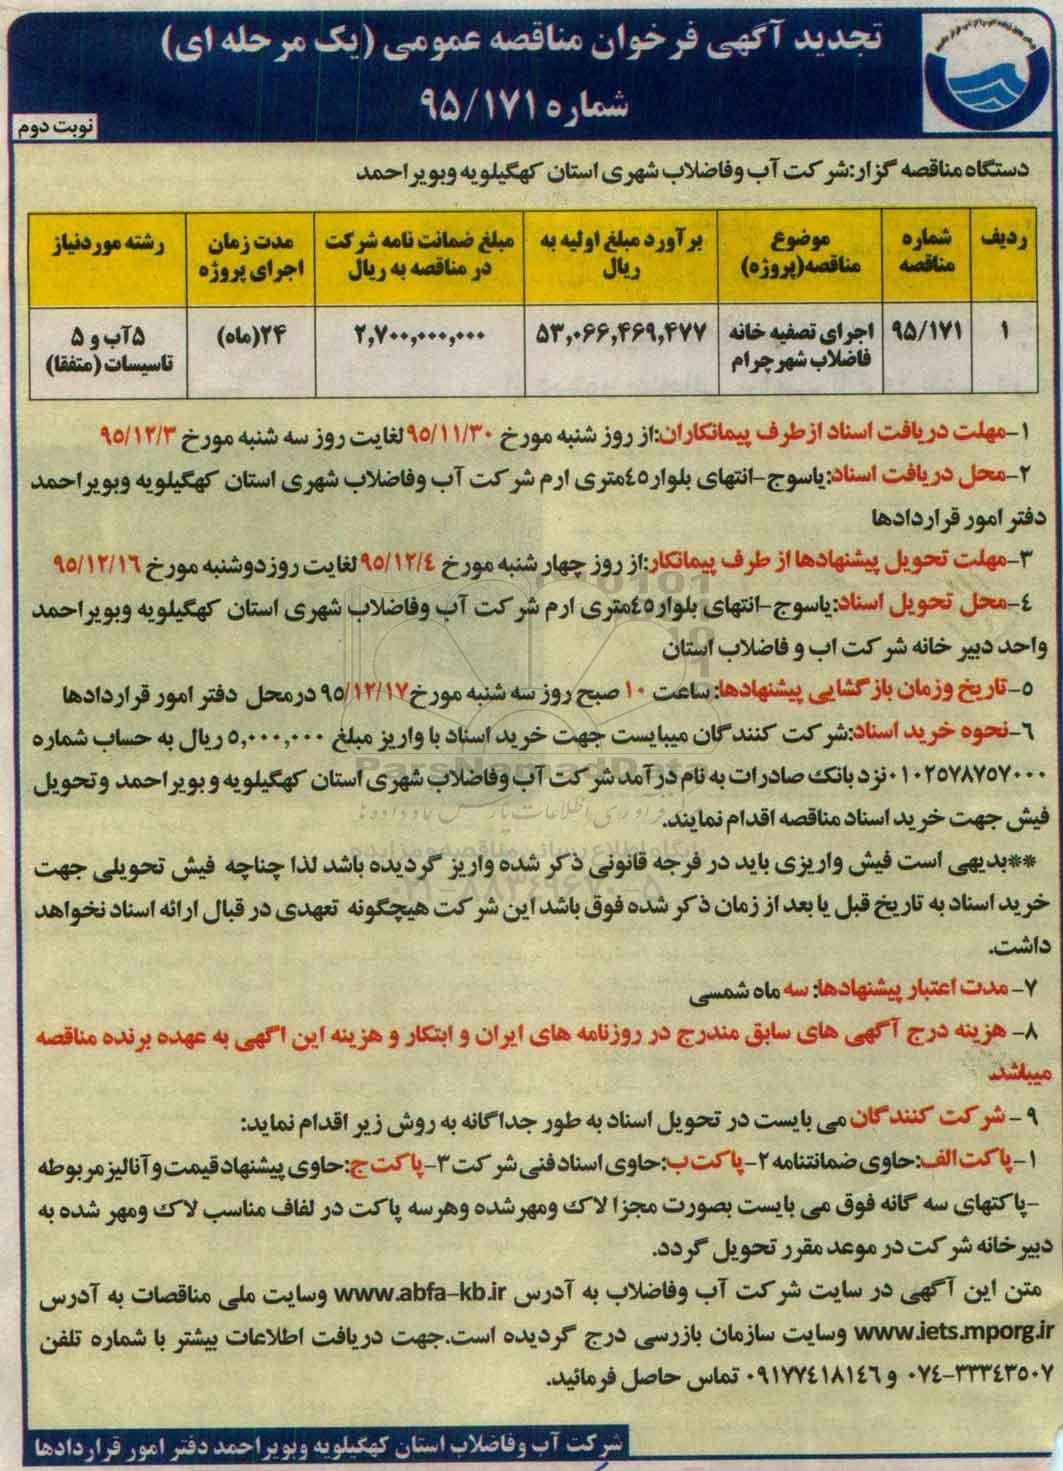 تجدید آگهی فرخوان مناقصه عمومی (یک مرحله ای)
شماره ۹۵/۱۷۱
نوبت دوم
دستگاه مناقصه گزار:شرکت آب وفاضلاب شهری استان کهگیلویه وبویراحمد
ردیف
شماره مناقصه
موضوع مناقصه(پروژه)
برآورد مبلغ اولیه به ریال
مبلغ ضمانت نامه شرکت در مناقصه به ریال
مدت زمان اجرای پروژه
رشته موردنیاز
۱
۹۵/۱۷۱
اجرای تصفیه خانه فاضلاب شهرچرام
۵۳,۰۶۶,۴۶۹,۴۷۷
۲,۷۰۰,۰۰۰,۰۰۰
۲۴(ماه)
۵آب و ۵ تاسیسات (متفقا)
۱-مهلت دریافت اسناد ازطرف پیمانکاران:از روز شنبه مورخ ۹۵/۱۱/۳۰ لغایت روز سه شنبه مورخ ۹۵/۱۲/۳
۲-محل دریافت اسناد:یاسوج-انتهای بلوار٤٥متری ارم شرکت آب وفاضلاب شهری استان کهگیلویه وبویراحمد
دفتر امور قراردادها
۳-مهلت تحویل پیشنهادها از طرف پیمانکار:از روز چهارشنبه مورخ ۹۵/۱۲/٤ لغایت روزدوشنبه مورخ ۹۵/۱۲/۱۶
٤-محل تحویل اسناد:یاسوج-انتهای بلوار٤٥متری ارم شرکت آب وفاضلاب شهری استان کهگیلویه وبویراحمد
واحد دبیر خانه شرکت اب و فاضلاب استان
۵-تاریخ وزمان بازگشایی پیشنهادها: ساعت ۱۰ صبح روز سه شنبه مورخ ۹۵/۱۲/۱۷ درمحل دفتر امور قراردادها
۶-نحوه خرید اسناد:شرکت کنندگان میبایست جهت خرید اسناد با واریز مبلغ ۵,۰۰۰,۰۰۰ ریال به حساب شماره
۰۱۰۲۵۷۸۷۵۷۰۰۰نزد بانک صادرات به نام درآمد شرکت آب وفاضلاب شهری استان کهگیلویه و بویراحمد وتحویل
فیش جهت خرید اسناد مناقصه اقدام نمایند.
**بدیهی است فیش واریزی باید در فرجه قانونی ذکر شده واریز گردیده باشد لذا چناچه فیش تحویلی جهت
خرید اسناد به تاریخ قبل یا بعد از زمان ذکر شده فوق باشد این شرکت هیچگونه تعهدی در قبال ارائه اسناد نخواهد
داشت.
۷- مدت اعتبار پیشنهادها: سه ماه شمسی
۸- هزینه درج آگهی های سابق مندرج در روزنامه های ایران و ابتکار و هزینه این اگهی به عهده برنده مناقصه
میباشد.
۹- شرکت کنندگان می بایست در تحویل اسناد به طور جداگانه به روش زیر اقدام نماید:
۱-پاکت الف:حاوی ضمانتنامه ۲-پاکت ب:حاوی اسناد فنی شرکت ۳-پاکت ج:حاوی پیشنهاد قیمت و آنالیز مربوطه
-پاکتهای سه گانه فوق می بایست بصورت مجزا لاک ومهرشده وهرسه پاکت در لفاف مناسب لاک ومهر شده به
دبیرخانه شرکت در موعد مقرر تحویل گردد.
متن این آگهی در سایت شرکت آب وفاضلاب به آدرس www.abfa-kb.ir وسایت ملی مناقصات به آدرس
www.iets.mporg.ir وسایت سازمان بازرسی درج گردیده است.جهت دریافت اطلاعات بیشتر با شماره تلفن
۰۷٤-۳۳۳٤۳۵۰۷ و ۰۹۱۷۷٤۱۸۱٤۶ تماس حاصل فرمائید.
شرکت آب وفاضلاب استان کهگیلویه وبویراحمد دفتر امور قراردادها
ParsNamadData
۰۲۱-۸۸۳۴۹۶۷۰-۵